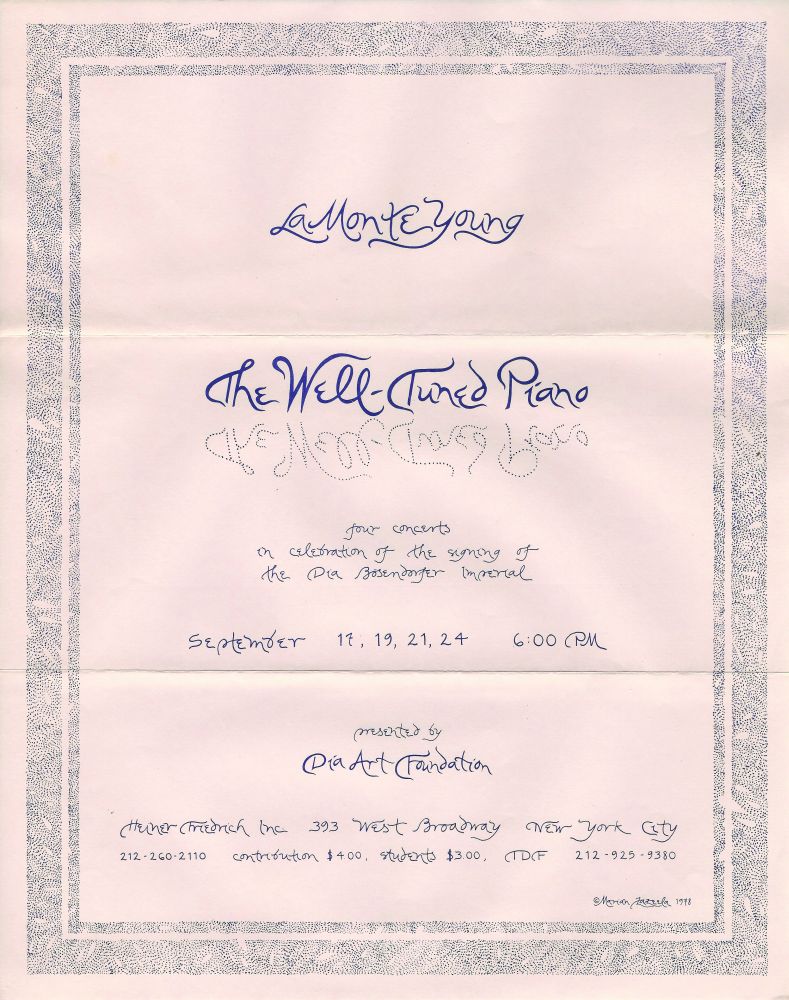 La Monte Young
The Well-Tuned Piano
The Well-Tuned Piano
four concerts
in celebration of the signing of
the Dia Bösendorfer Imperial
September 17, 19, 21, 24 6:00 PM
presented by
Dia Art Foundation
Heiner Friedrich Inc 393 West Broadway New York City
212-260-2110 contribution $4.00, students $3.00, TDF 212-925-9380
©Marian Zazeela 1978